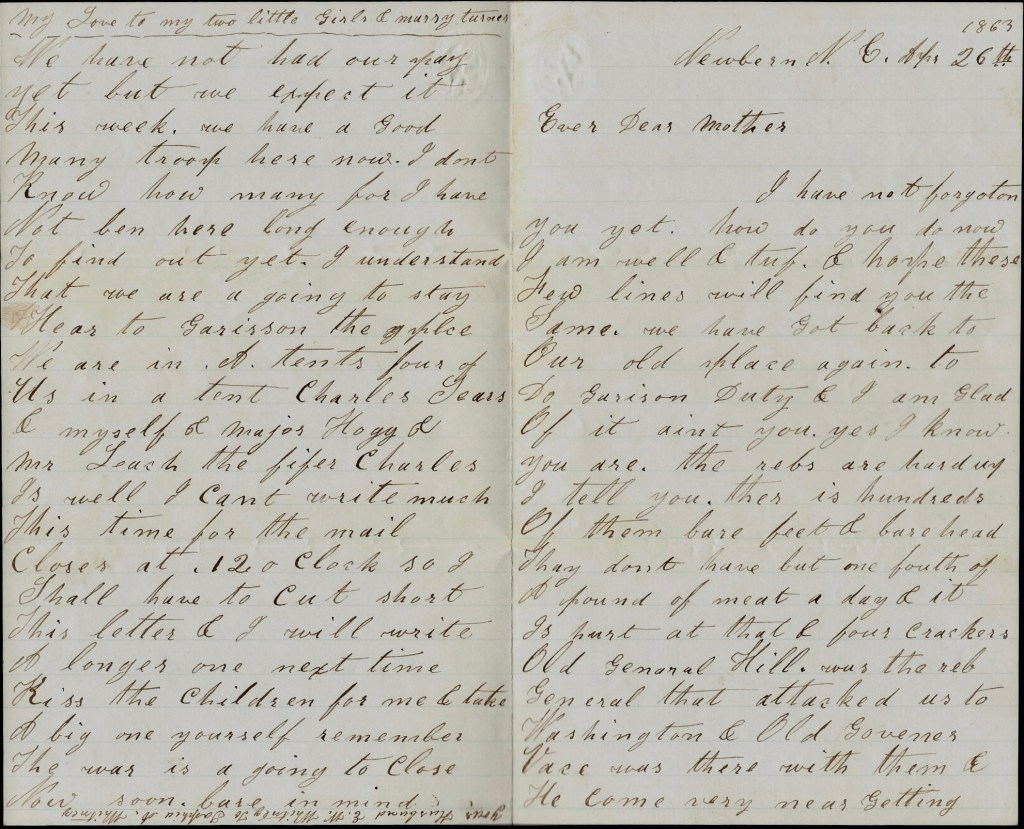 1863
Newbern N. C. Apr 26th
Ever Dear Mother
I have not forgoton
you yet. how do you do now
I am well & tuf. & hope these
Few lines will find you the
Same. we have Got back to
Our old place again. to
Do Garison Duty & I am Glad
Of it aint you. yes I know
you are. the rebs are hard up
I tell you. ther is hundreds
Of them bare feet & bare head
Thay dont have but one fouth of
A pound of meat a day & it
Is purt at that & four crackers
Old Genaral Hill. was the reb
General that attacked us to
Washington & Old Govener
Vace was there with them &
He come very near Getting
My Love to my two little Girls & marry turner
We have not had our pay
yet but we expect it
This week. we have a Good
Many troop here now. I dont
Know how many for I have
Not ben here long enough
To find out yet. I understand
That we are a going to stay
Hear to Garisson the place
We are in .A. tents four of
Us in a tent Charles Sears
& myself & Major Hogg &
Mr Leach the fifer Charles
Is well I Cant write much
This time for the mail
Closes at .12. o Clock so I
Shall have to Cut short
This letter & I will write
A longer one next time
Kiss the Children for me & take
A big one yourself remember
The war is a going to Close
Now soon. bare in mind
your
Husband E. W. Whitney To Sophia A. Whitney